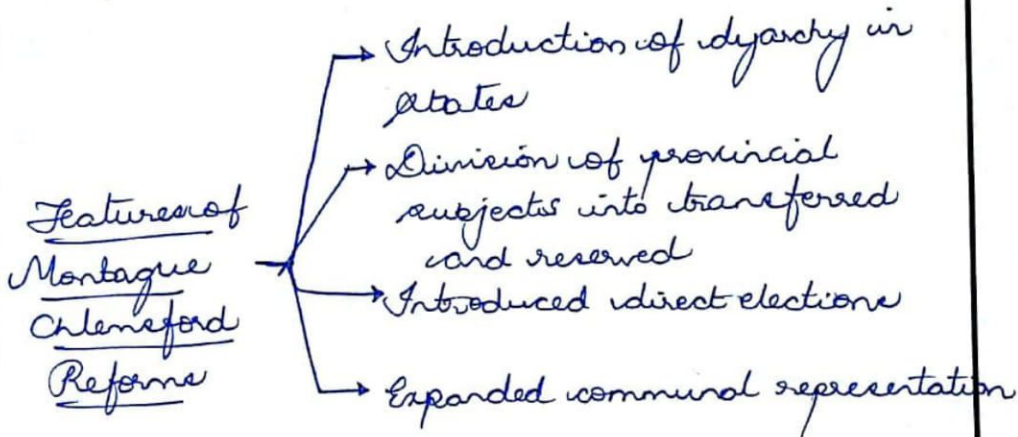 Features of
Montague
Chlemsford
Reforms
Introduction of dyarchy in
states
Division of provincial
subjects into transferred
and reserved
Introduced direct elections
Expanded communal representation